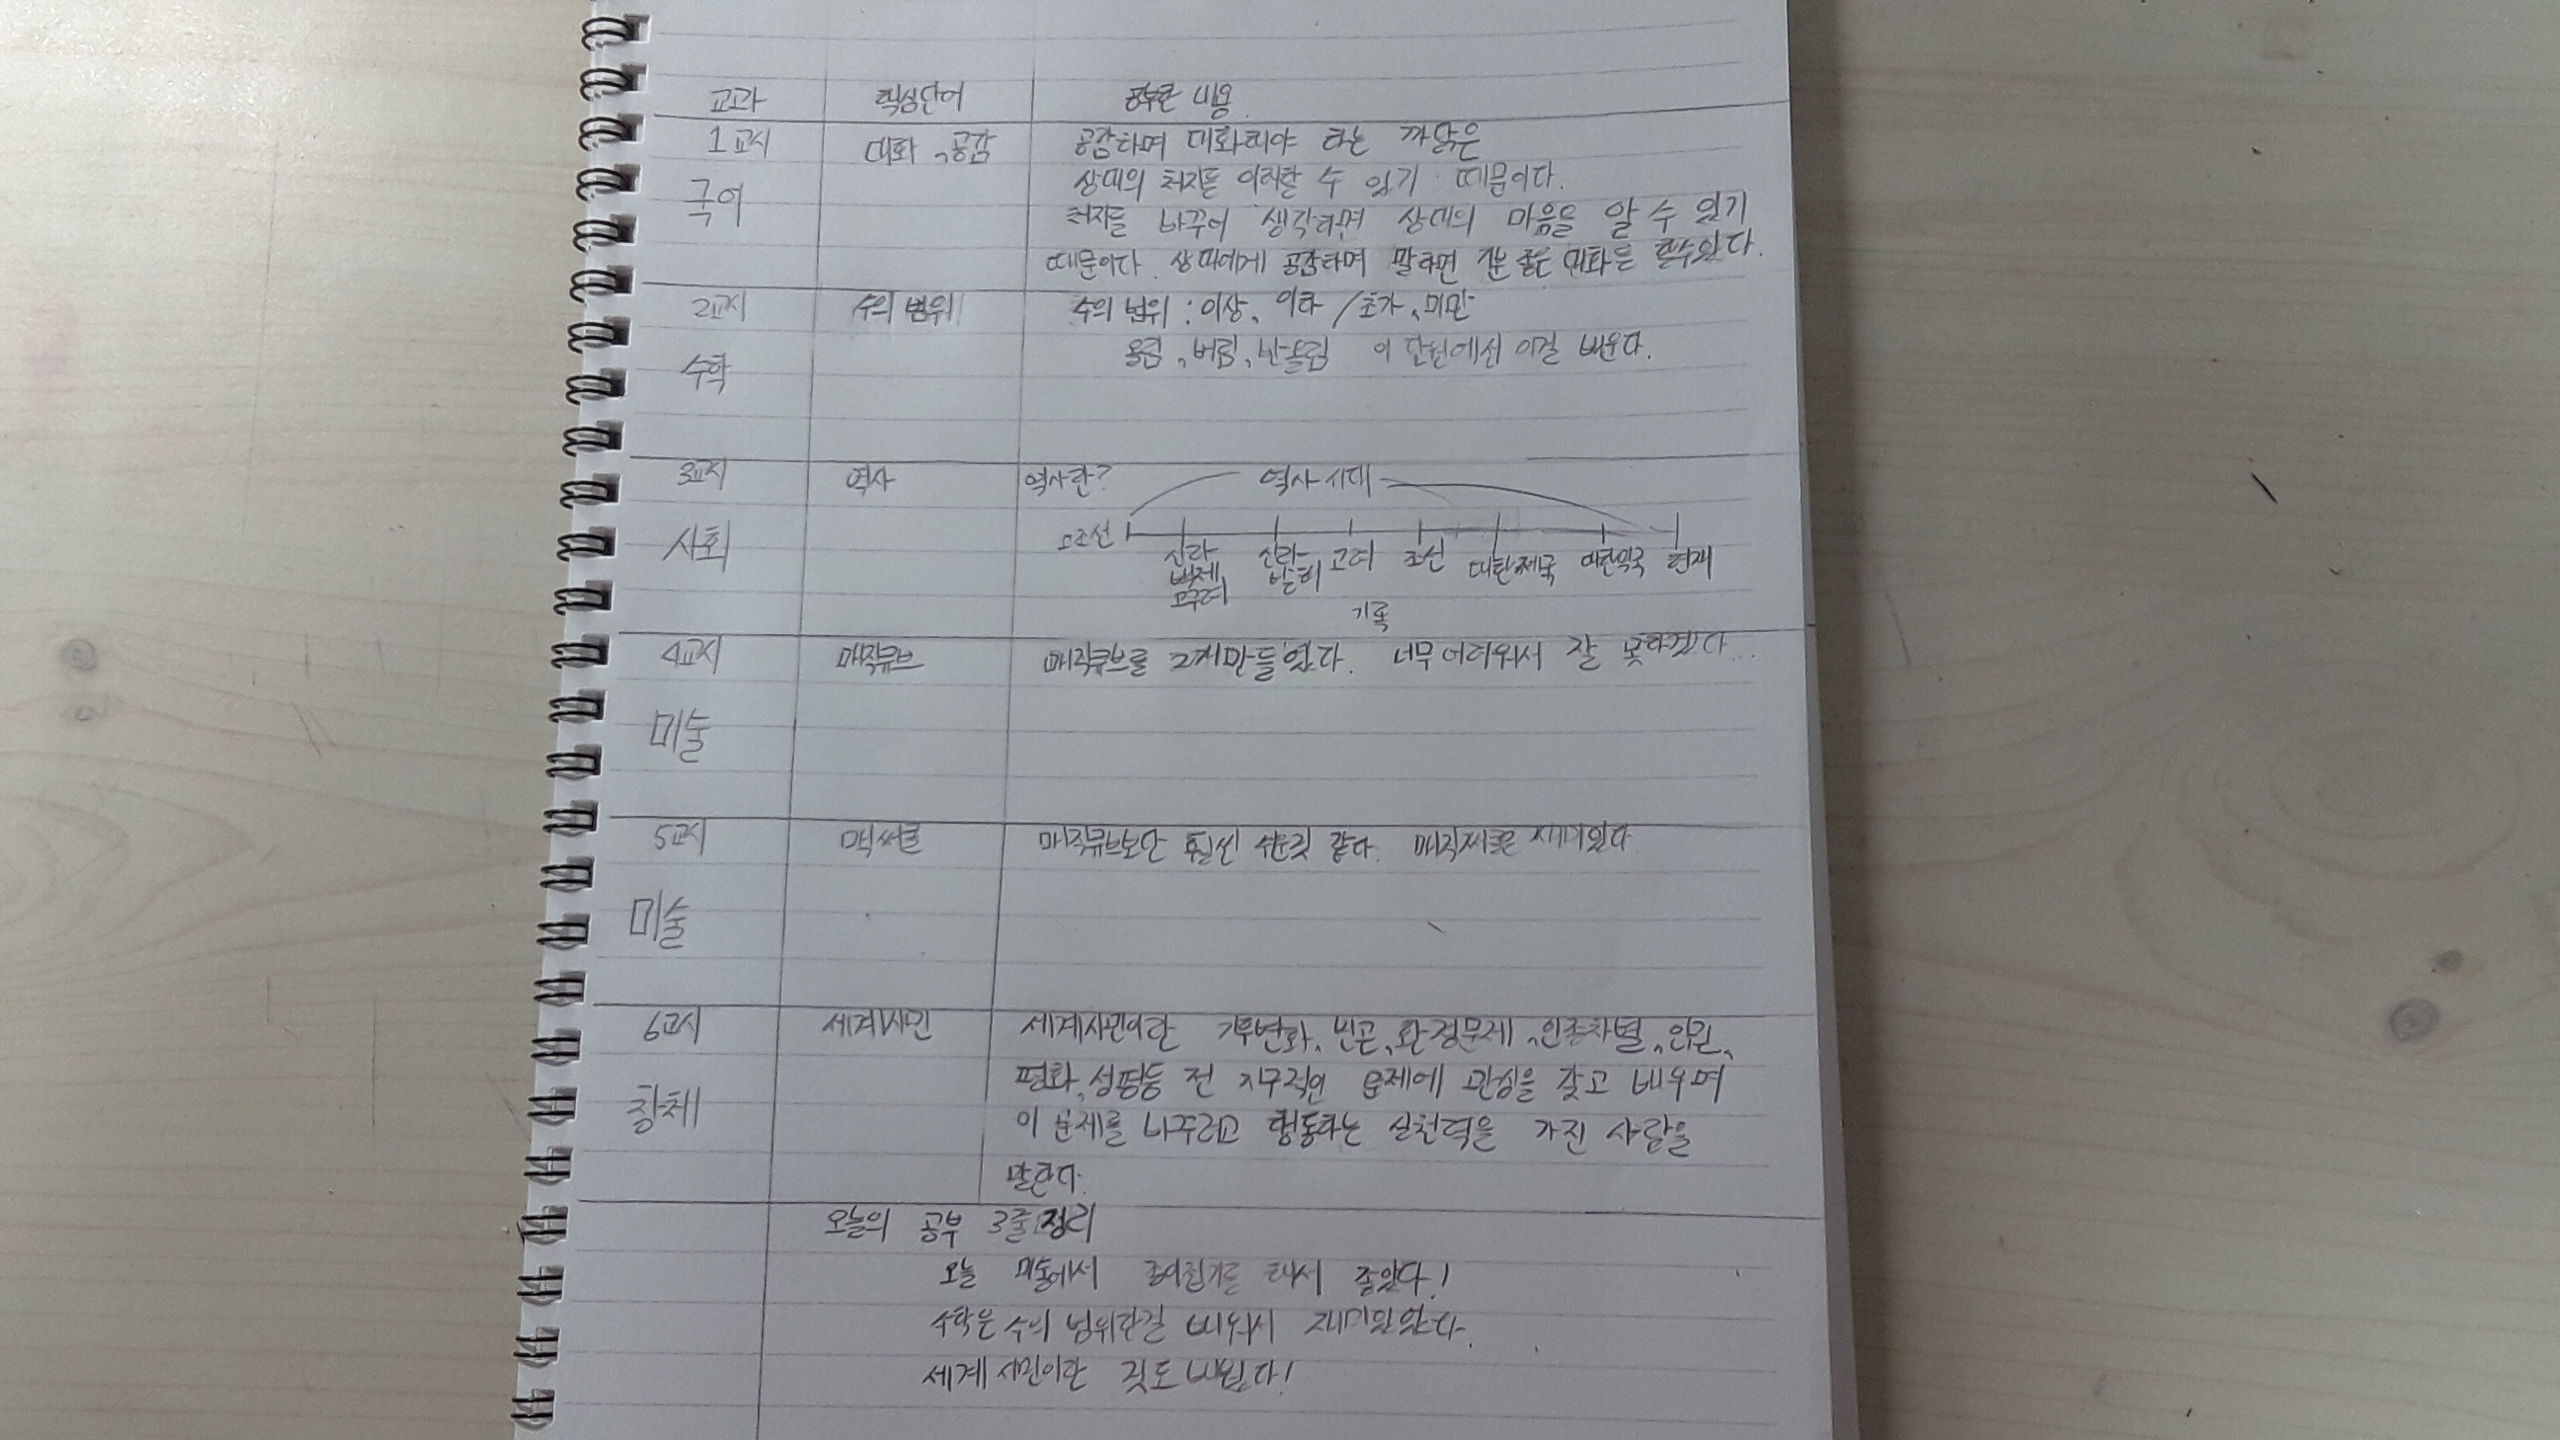 교과 핵심단어 공부한 내용
1교시 대화, 공감 공감하며 대화해야 하는 까닭은
국어 상대의 처지를 이해할 수 있기 때문이다.
처지를 바꾸어 생각하면 상대의 마음을 알 수 있기
때문이다. 상대에게 공감하며 말하면 기분 좋은 대화를 할수있다.
2교시 수의 범위 수의 범위 : 이상, 이하 / 초과, 미만
올림, 버림, 반올림 이 단원에선 이걸 배운다.
수학
3교시 역사 역사란? 역사 시대
사회 고조선 신라 백제 고구려 신라 발해 고려 조선 대한제국 대한민국 현재
기록
4교시 매직큐브 매직큐브를 2개만들었다. 너무 어려워서 잘 못하겠다...
미술
5교시 매직써클 매직큐브보단 훨씬 쉬운것 같다. 매직써클은 재미있다.
미술
6교시 세계시민 세계시민이란 기후변화, 빈곤, 환경문제, 인종차별, 인권,
창체 평화, 성평등 전 지구적인 문제에 관심을 갖고 배우며
이 문제를 바꾸려고 행동하는 실천력을 가진 사람을
말한다.
오늘의 공부 3줄 정리
오늘 미술에서 종이접기를 해서 좋았다!
수학은 수의 범위란걸 배워서 재미있었다.
세계 시민이란 것도 배웠다!